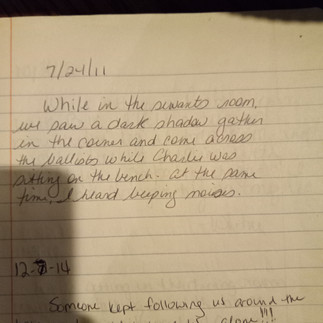 7/24/11
While in the servants room,
we saw a dark shadow gather
in the corner and come across
the while Charlie was
sitting on the bench. At the same
time, I heard beeping noises.
12-14
Someone kept following us around the
alone!!!